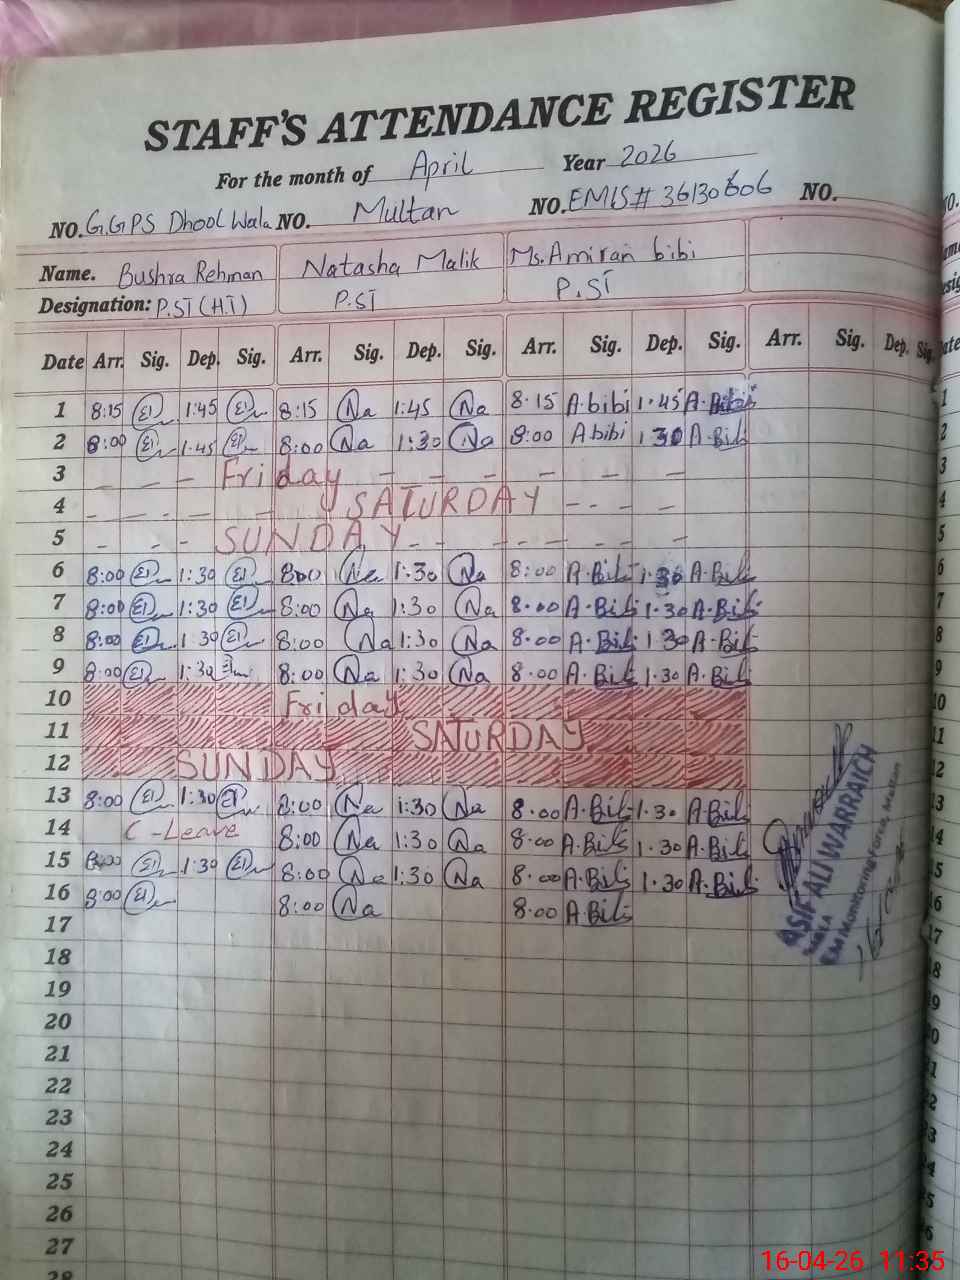 STAFF'S ATTENDANCE REGISTER
For the month of April Year 2026
NO. G.G.P.S Dhool Wala NO. Multan NO. EMIS# 36130606 NO.
Name. Bushra Rehman Natasha Malik Ms. Amiran bibi
Designation: P.ST (H.T) P.ST P.ST
Date Arr. Sig. Dep. Sig. Arr. Sig. Dep. Sig. Arr. Sig. Dep. Sig. Arr. Sig. Dep. Sig.
1 8:15 1:45 8:15 Na 1:45 Na 8.15 A.bibi 1.45 A.Bibi
2 8:00 1.45 8:00 Na 1:30 Na 8:00 A bibi 1 30 A.Bib
3 — — — Friday — — — — — —
4 - — — — SATURDAY - - - —
5 - - - SUNDAY - - - - - - - -
6 8:00 1:30 8:00 Na 1:30 Na 8:00 A.Bib 1.30 A.Bib
7 8:00 1:30 8:00 Na 1:30 Na 8.00 A.Bib 1.30 A.Bib
8 8:00 1:30 8:00 Na 1:30 Na 8.00 A.Bib 1 30 A.Bib
9 8:00 1:30 8:00 Na 1:30 Na 8.00 A.Bib 1.30 A.Bib
10 Friday
11 SATURDAY
12 SUNDAY
13 8:00 1:30 8:00 Na 1:30 Na 8.00 A.Bib 1.30 A.Bib
14 C-Leave 8:00 Na 1:30 Na 8.00 A.Bib 1.30 A.Bib
15 8:00 1:30 8:00 Na 1:30 Na 8.00 A.Bib 1.30 A.Bib
16 8:00 8:00 Na 8.00 A.Bib
17
18
19
20
21
22
23
24
25
26
27
28
ASIF ALI WARRAICH
MEA
Monitoring Force, Multan
16-04-26 11:35